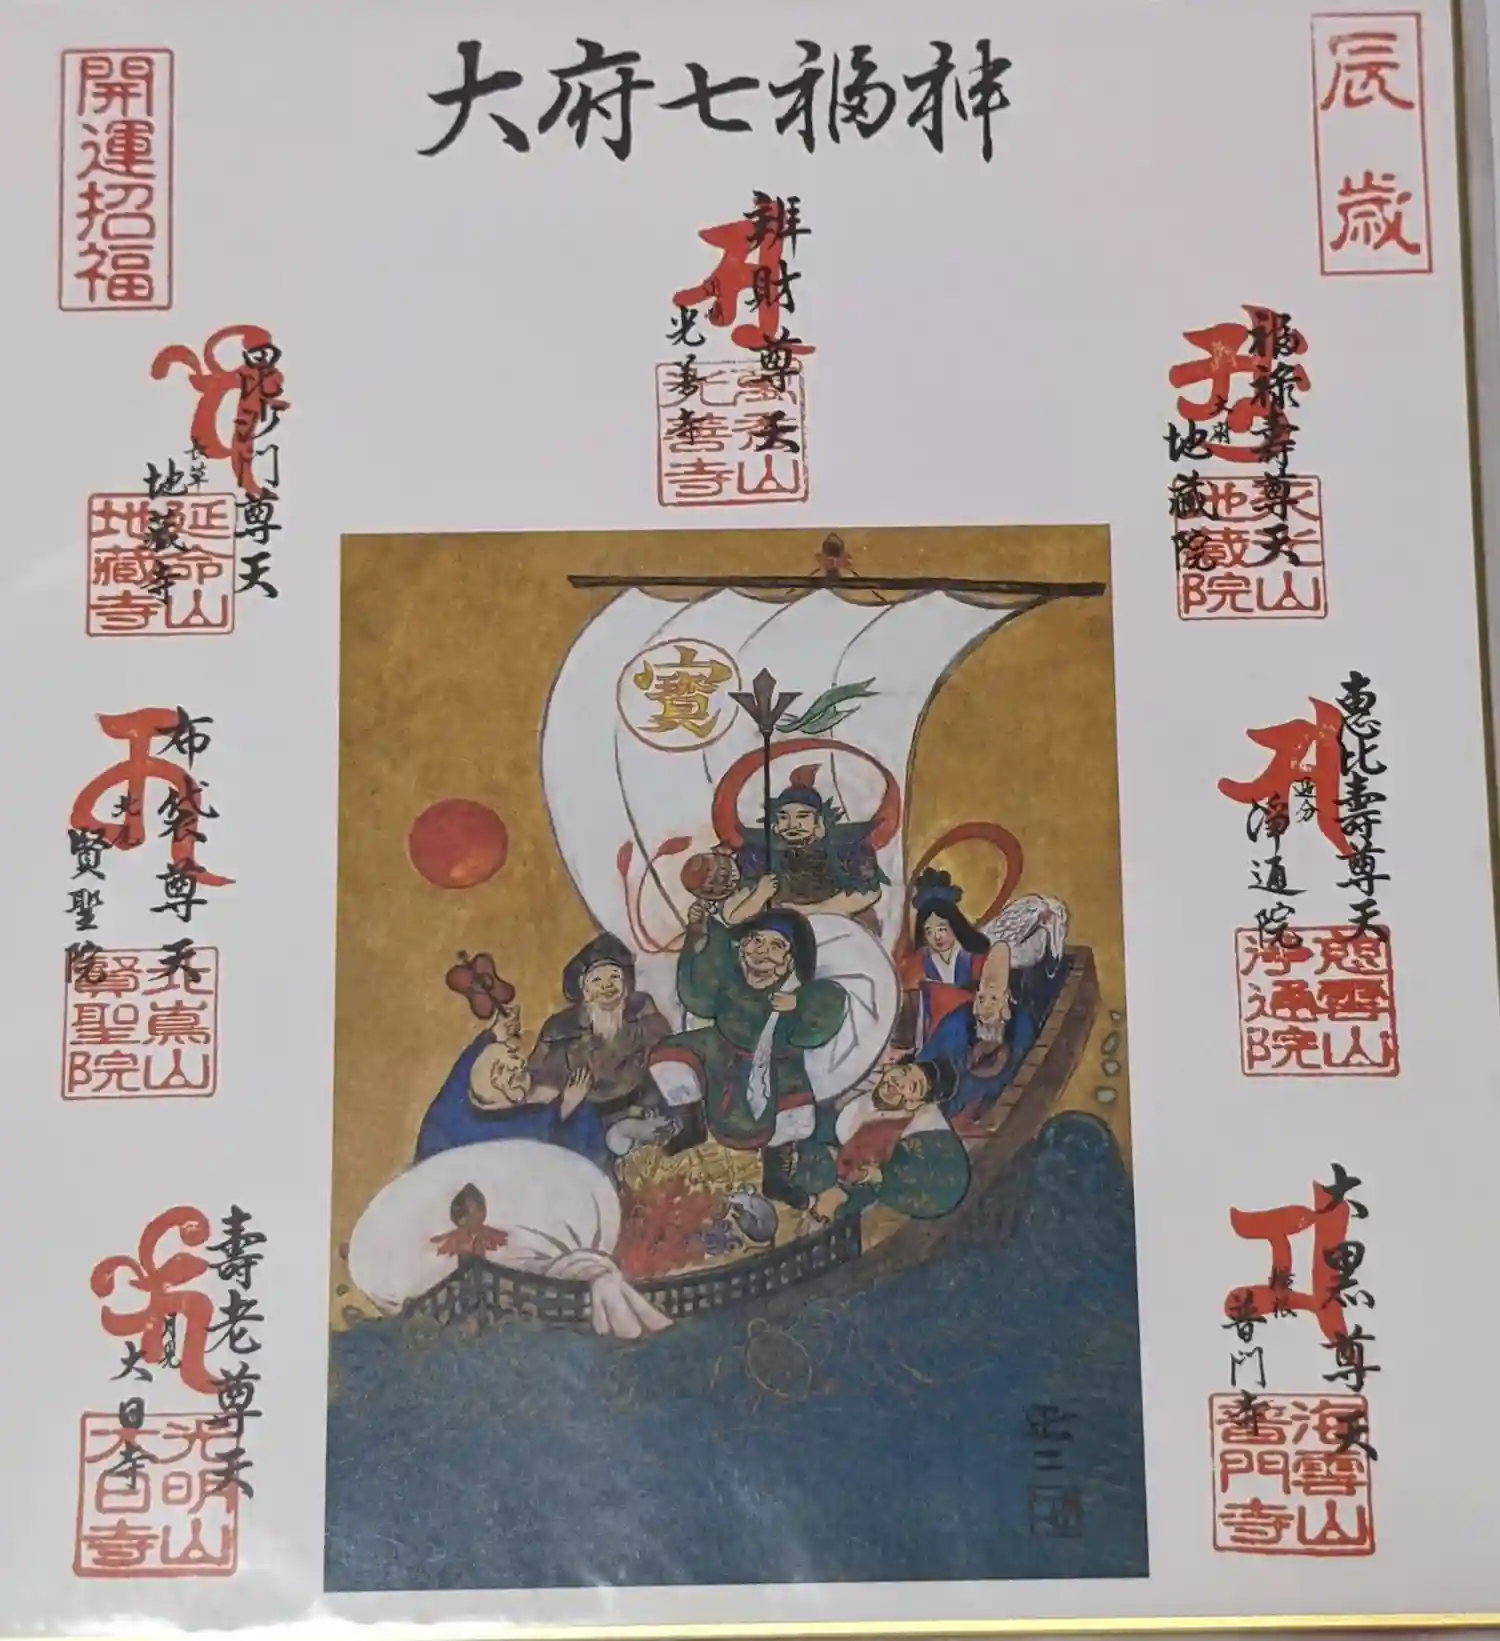 大府七福神
辰歳
開運招福
辨財尊天
光善寺
光善寺
福禄壽尊天
大府
地蔵院
永光山
地蔵院
毘沙門尊天
長草
地蔵寺
延命山
地藏寺
恵比壽尊天
追分
浄通院
慈雲山
浄通院
布袋尊天
北尾
賢聖院
北嶌山
賢聖院
大黒尊天
横根
普門寺
海雲山
普門寺
壽老尊天
月見
大日寺
光明山
大日寺
寳